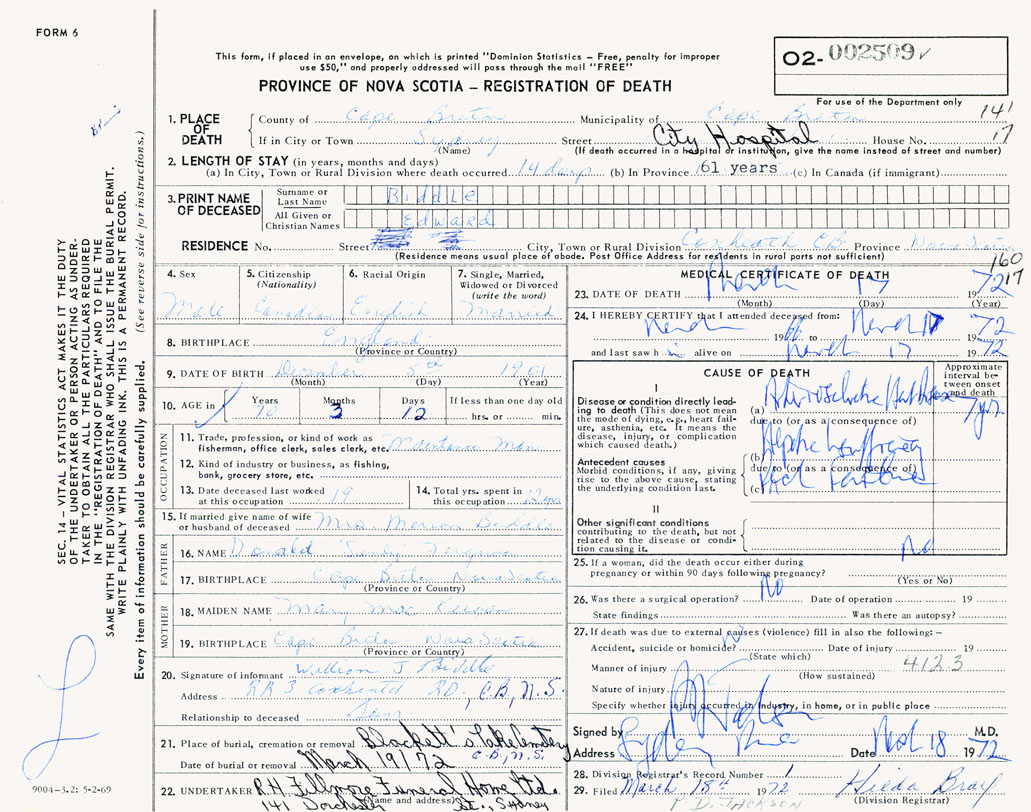 FORM 6
This form, if placed in an envelope, on which is printed "Dominion Statistics – Free, penalty for improper
use $50," and properly addressed will pass through the mail "FREE"
PROVINCE OF NOVA SCOTIA – REGISTRATION OF DEATH
O2- 002509
For use of the Department only
141
17
1. PLACE OF DEATH
County of Cape Breton Municipality of Cape Breton
If in City or Town Sydney Street City Hospital House No.
(Name) (If death occurred in a hospital or institution, give the name instead of street and number)
2. LENGTH OF STAY (in years, months and days)
(a) In City, Town or Rural Division where death occurred 14 days (b) In Province 61 years (c) In Canada (if immigrant)
3. PRINT NAME OF DECEASED
Surname or Last Name Biddle
All Given or Christian Names Edward
RESIDENCE No. Street City, Town or Rural Division Coxheath C.B. Province Nova Scotia
(Residence means usual place of abode. Post Office Address for residents in rural parts not sufficient)
160
217
4. Sex Male
5. Citizenship (Nationality) Canadian
6. Racial Origin English
7. Single, Married, Widowed or Divorced (write the word) Married
8. BIRTHPLACE England
(Province or Country)
9. DATE OF BIRTH December 5th 1901
(Month) (Day) (Year)
10. AGE in Years 70 Months 3 Days 12 If less than one day old
hrs. or min.
OCCUPATION
11. Trade, profession, or kind of work as
fisherman, office clerk, sales clerk, etc. Man
12. Kind of industry or business, as fishing,
bank, grocery store, etc.
13. Date deceased last worked
at this occupation 19
14. Total yrs. spent in
this occupation
15. If married give name of wife
or husband of deceased Mrs Marion Biddle
FATHER
16. NAME Donald Sandy Ferguson
17. BIRTHPLACE Cape Breton Nova Scotia
(Province or Country)
MOTHER
18. MAIDEN NAME Mary Mac
19. BIRTHPLACE Cape Breton - Nova Scotia
(Province or Country)
20. Signature of informant William J Biddle
Address RR 3 RD, C.B., N.S.
Relationship to deceased Son
21. Place of burial, cremation or removal Blackett's Lake Cemetery
C.B., N.S.
Date of burial or removal March 19/72
22. UNDERTAKER R.H. Fillmore Funeral Home Ltd.
(Name and address)
141 Dorchester St., Sydney
MEDICAL CERTIFICATE OF DEATH
23. DATE OF DEATH March 17 1972
(Month) (Day) (Year)
24. I HEREBY CERTIFY that I attended deceased from:
March 1966 to March 17 1972
and last saw h im alive on March 17 1972
CAUSE OF DEATH
Approximate interval between onset and death
I
Disease or condition directly lead-
ing to death (This does not mean
the mode of dying, e.g., heart fail-
ure, asthenia, etc. It means the
disease, injury, or complication
which caused death.)
(a) 7 yrs
due to (or as a consequence of)
Antecedent causes
Morbid conditions, if any, giving
rise to the above cause, stating
the underlying condition last.
(b)
due to (or as a consequence of)
(c)
II
Other significant conditions
contributing to the death, but not
related to the disease or condi-
tion causing it.
25. If a woman, did the death occur either during
pregnancy or within 90 days following pregnancy? No
(Yes or No)
26. Was there a surgical operation? No Date of operation 19
State findings Was there an autopsy?
27. If death was due to external causes (violence) fill in also the following: –
Accident, suicide or homicide? Date of injury 19
(State which)
Manner of injury 4123
(How sustained)
Nature of injury
Specify whether injury occurred in Industry, in home, or in public place
Signed by M.D.
Address Sydney River Date March 18 1972
28. Division Registrar's Record Number 1
29. Filed March 18th 1972 Hilda Bray
(Division Registrar)
P.D. JACKSON
SEC. 14 – VITAL STATISTICS ACT MAKES IT THE DUTY
OF THE UNDERTAKER OR PERSON ACTING AS UNDER-
TAKER TO OBTAIN ALL THE PARTICULARS REQUIRED
IN THE "REGISTRATION OF DEATH" AND TO FILE THE
SAME WITH THE DIVISION REGISTRAR WHO SHALL ISSUE THE BURIAL PERMIT.
WRITE PLAINLY WITH UNFADING INK. THIS IS A PERMANENT RECORD.
Every item of information should be carefully supplied. (See reverse side for instructions.)
9004–3.2: 5-2-69